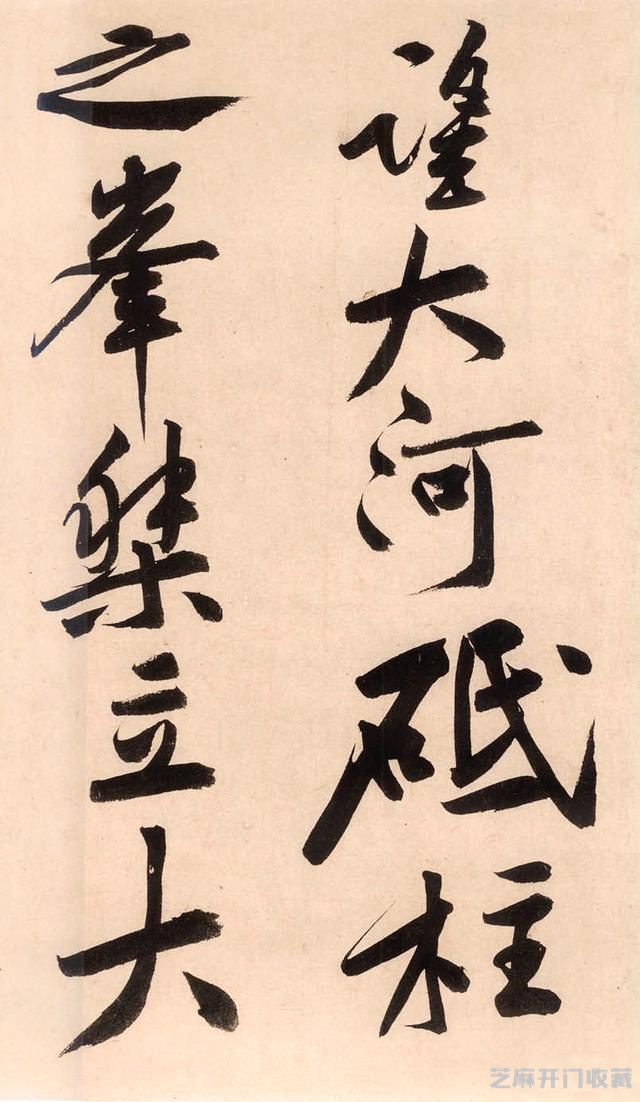 大河砥柱
之峯桀立大
芝麻开门收藏